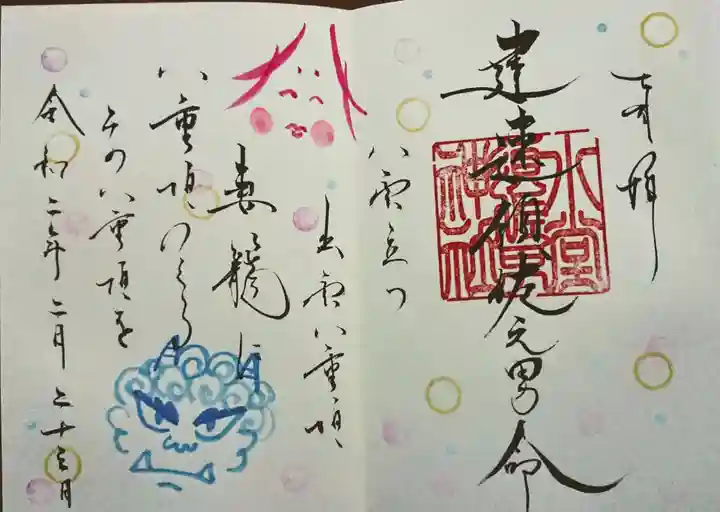 奉拝
建速須佐之男命
水堂
須佐男
神社
八雲立つ
出雲八重垣
妻籠に
八重垣つくる
その八重垣を
令和二年二月二十三日